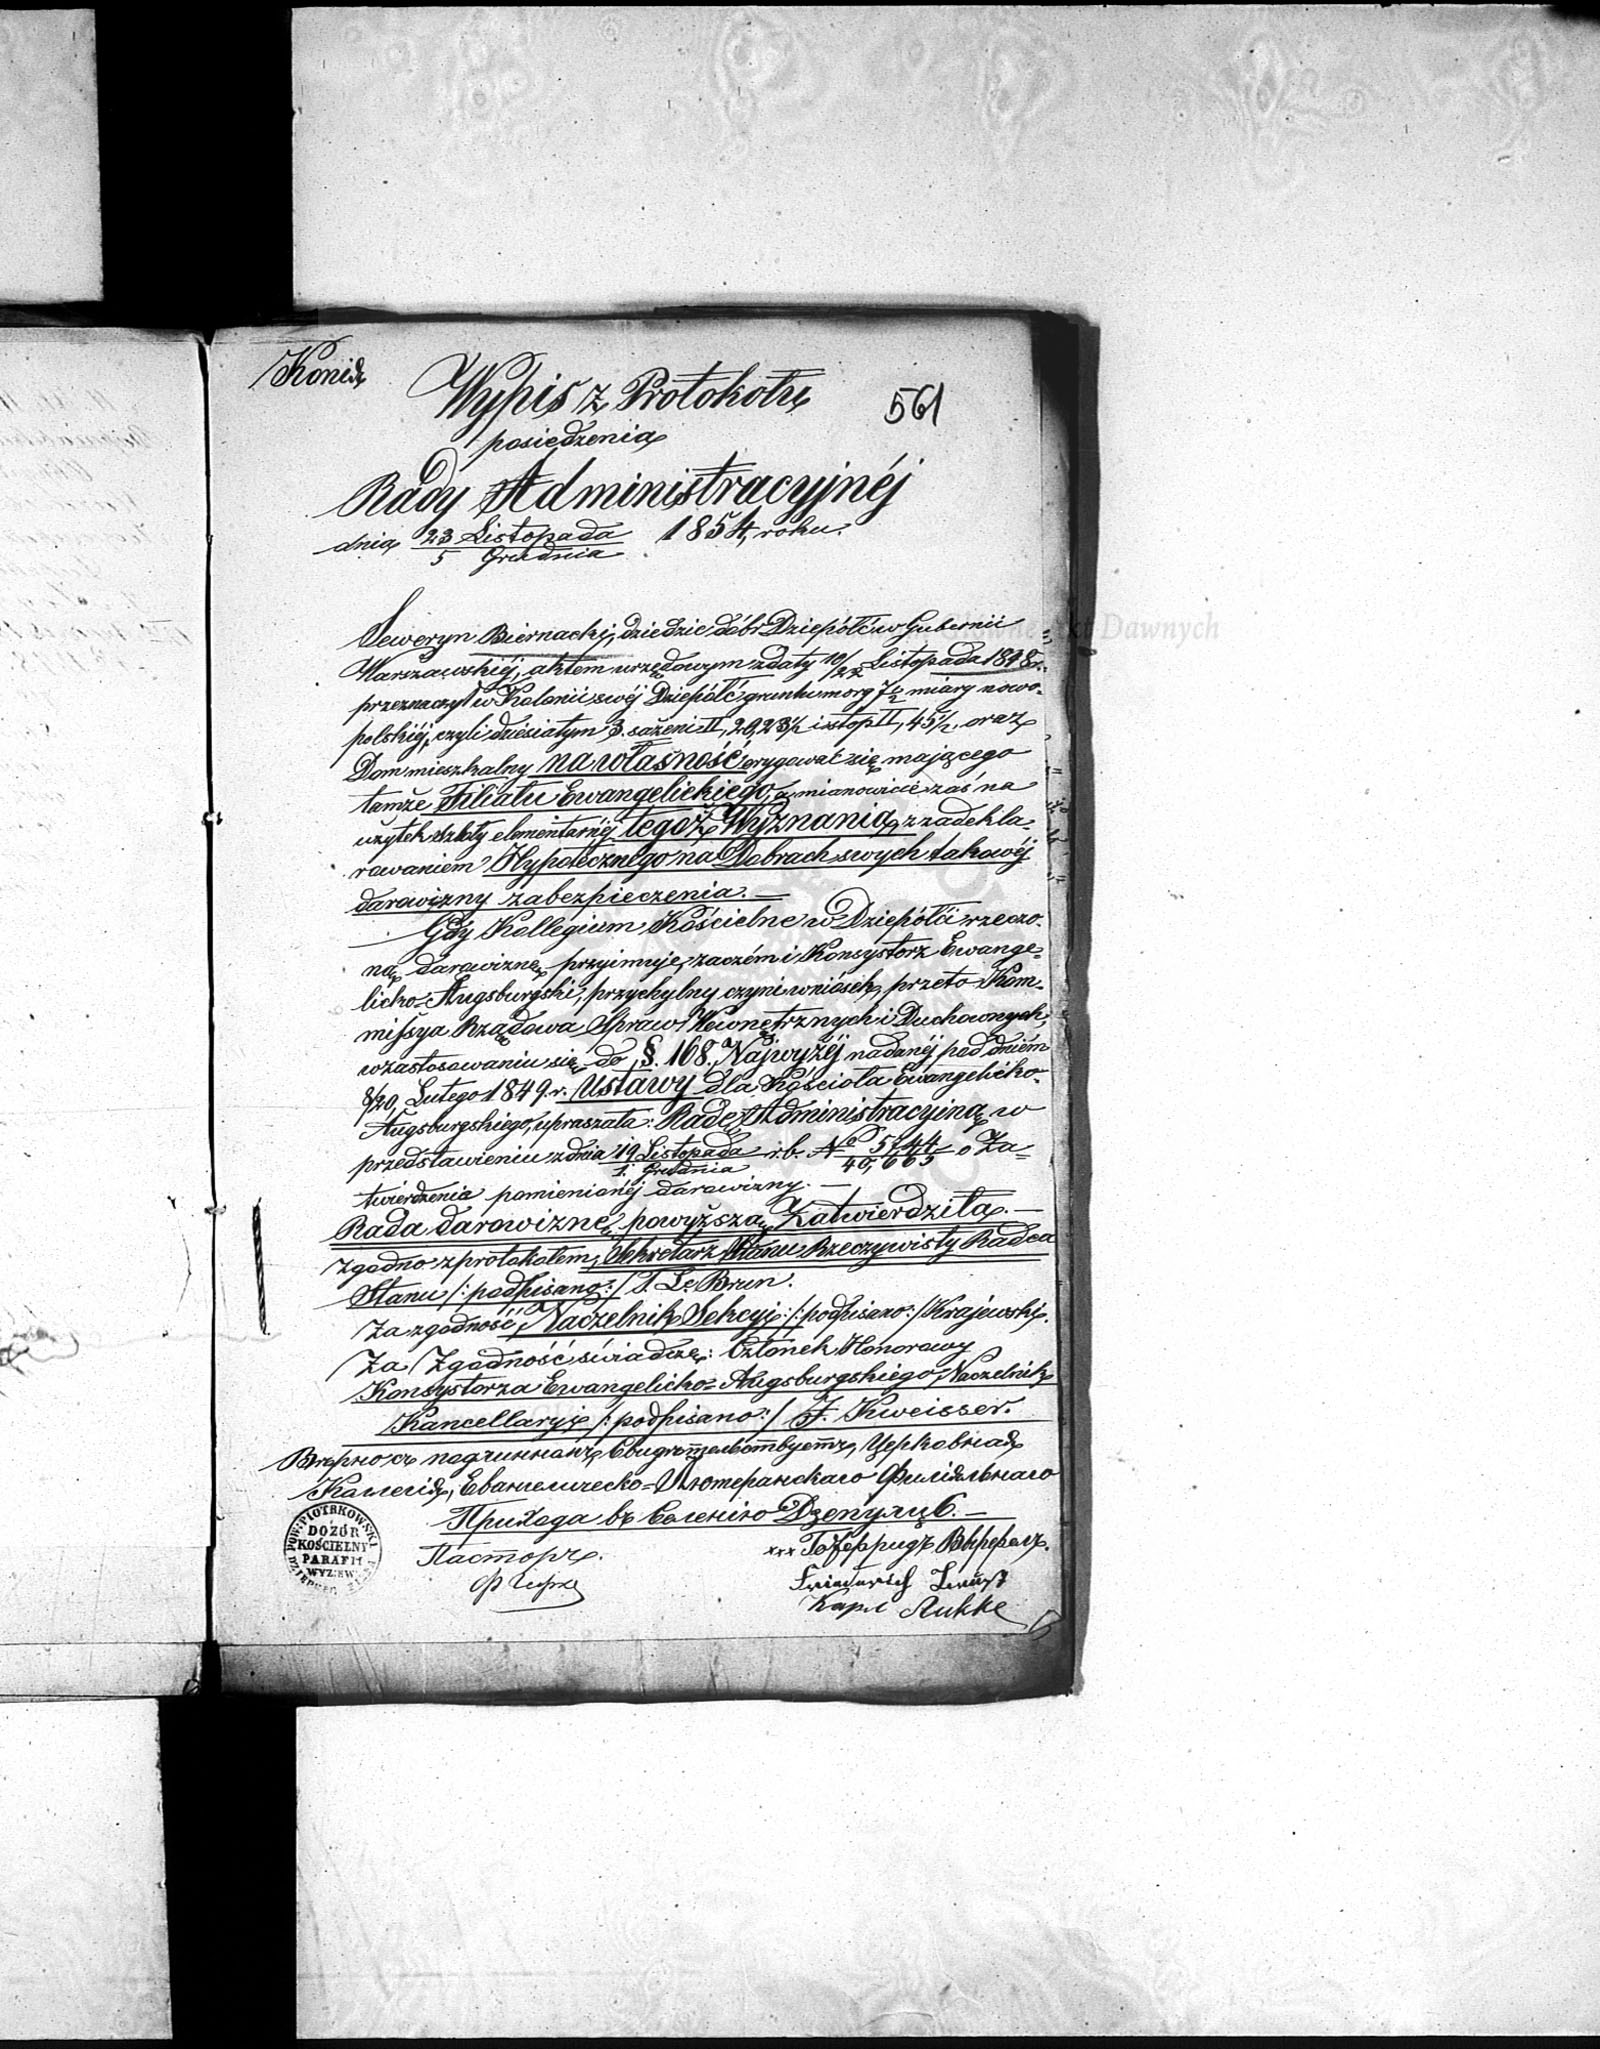 Копія
561
Wypis z Protokołu
posiedzenia
Rady Administracyjnéj
dnia 23 Listopada 1854, roku.
5 Grudnia
Seweryn Biernacki, dziedzic dóbr Dziepółć w Gubernii
Warszawskiéj, aktem urzędowym z daty 10/22 Listopada 1848 r.
przeznaczył w Kolonii swéj Dziepółć gruntu morg 7 1/2 miary nowo-
polskiéj, czyli dziesiatyn 3. sażeni II, 20,23 1/2 i stop II, 45 1/2, oraz
Dom mieszkalny na własność erygować się mającego
tamże Filiału Ewangelickiego, a mianowicie zaś na
użytek szkoły elementarnéj tegoż Wyznania, z zadekla-
rowaniem Hypotecznego na Dobrach swych takowéj
darowizny zabezpieczenia.—
Gdy Kollegium Kościelne w Dziepółci rzeczo-
ną darowiznę przyimuje, zaczém i Konsystorz Ewange-
licko=Augsburgski, przychylny czyni wniosek, przeto Kom-
missya Rządowa Spraw Wewnętrznych i Duchownych,
w zastosowaniu się do §. 168. Najwyżéj nadanéj pod dniem
8/20 Lutego 1849. r. Ustawy dla Kościoła Ewangelicko-
Augsburgskiego, upraszała: Radę Administracyiną w
przedstawieniu z dnia 19 Listopada r.b. No 5744 o Za=
1. Grudnia 40,665
twierdzenia pomienionéj darowizny.—
Rada darowiznę powyższą Zatwierdziła.—
Zgodno z protokołem, Sekretarz Stanu Rzeczywisty Radca
Stanu /:podpisano:/ T. Le Brun.
Za zgodność, Naczelnik Sekcyi: /:podpisano:/ Krajewski.
Za Zgodność świadczę: Członek Honorowy
Konsystorza Ewangelicko=Augsburgskiego, Naczelnik
Kancellaryi /:podpisano:/ J. Kweisser.
Вѣрность съ подлиннымъ Свидѣтельствуетъ, Церковная
Колегія, Евангелическо=Лютеранскаго Филіяльнаго
Прихода въ Селеніи Дзепулць.—
Пасторъ.
xxx Готфридъ
Карл Ликке
POW: PIOTRKOWSKI
DOZÓR
KOŚCIELNY
PARAFII
WYZ: EW:
Dawnych